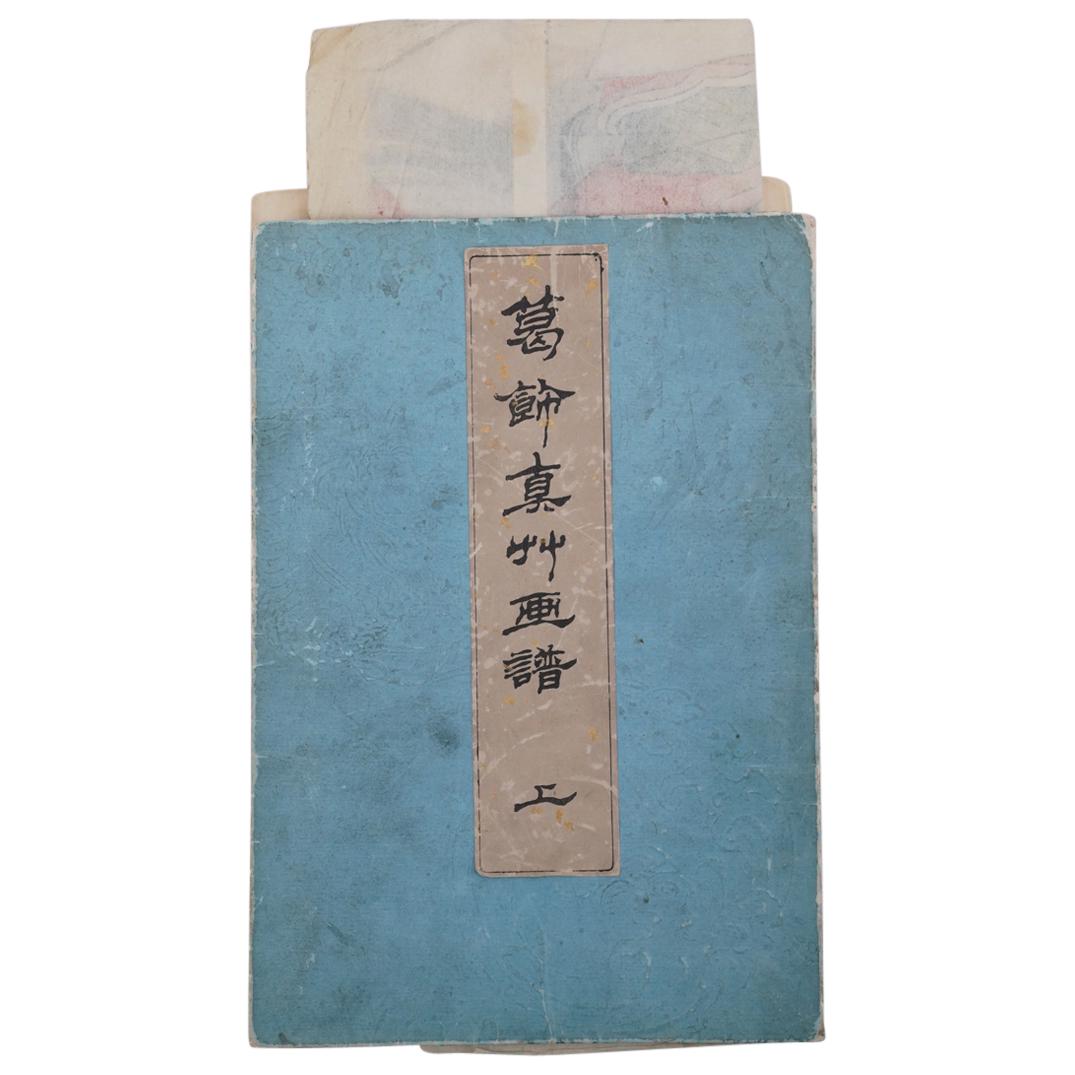 葛飾真艸画譜 上